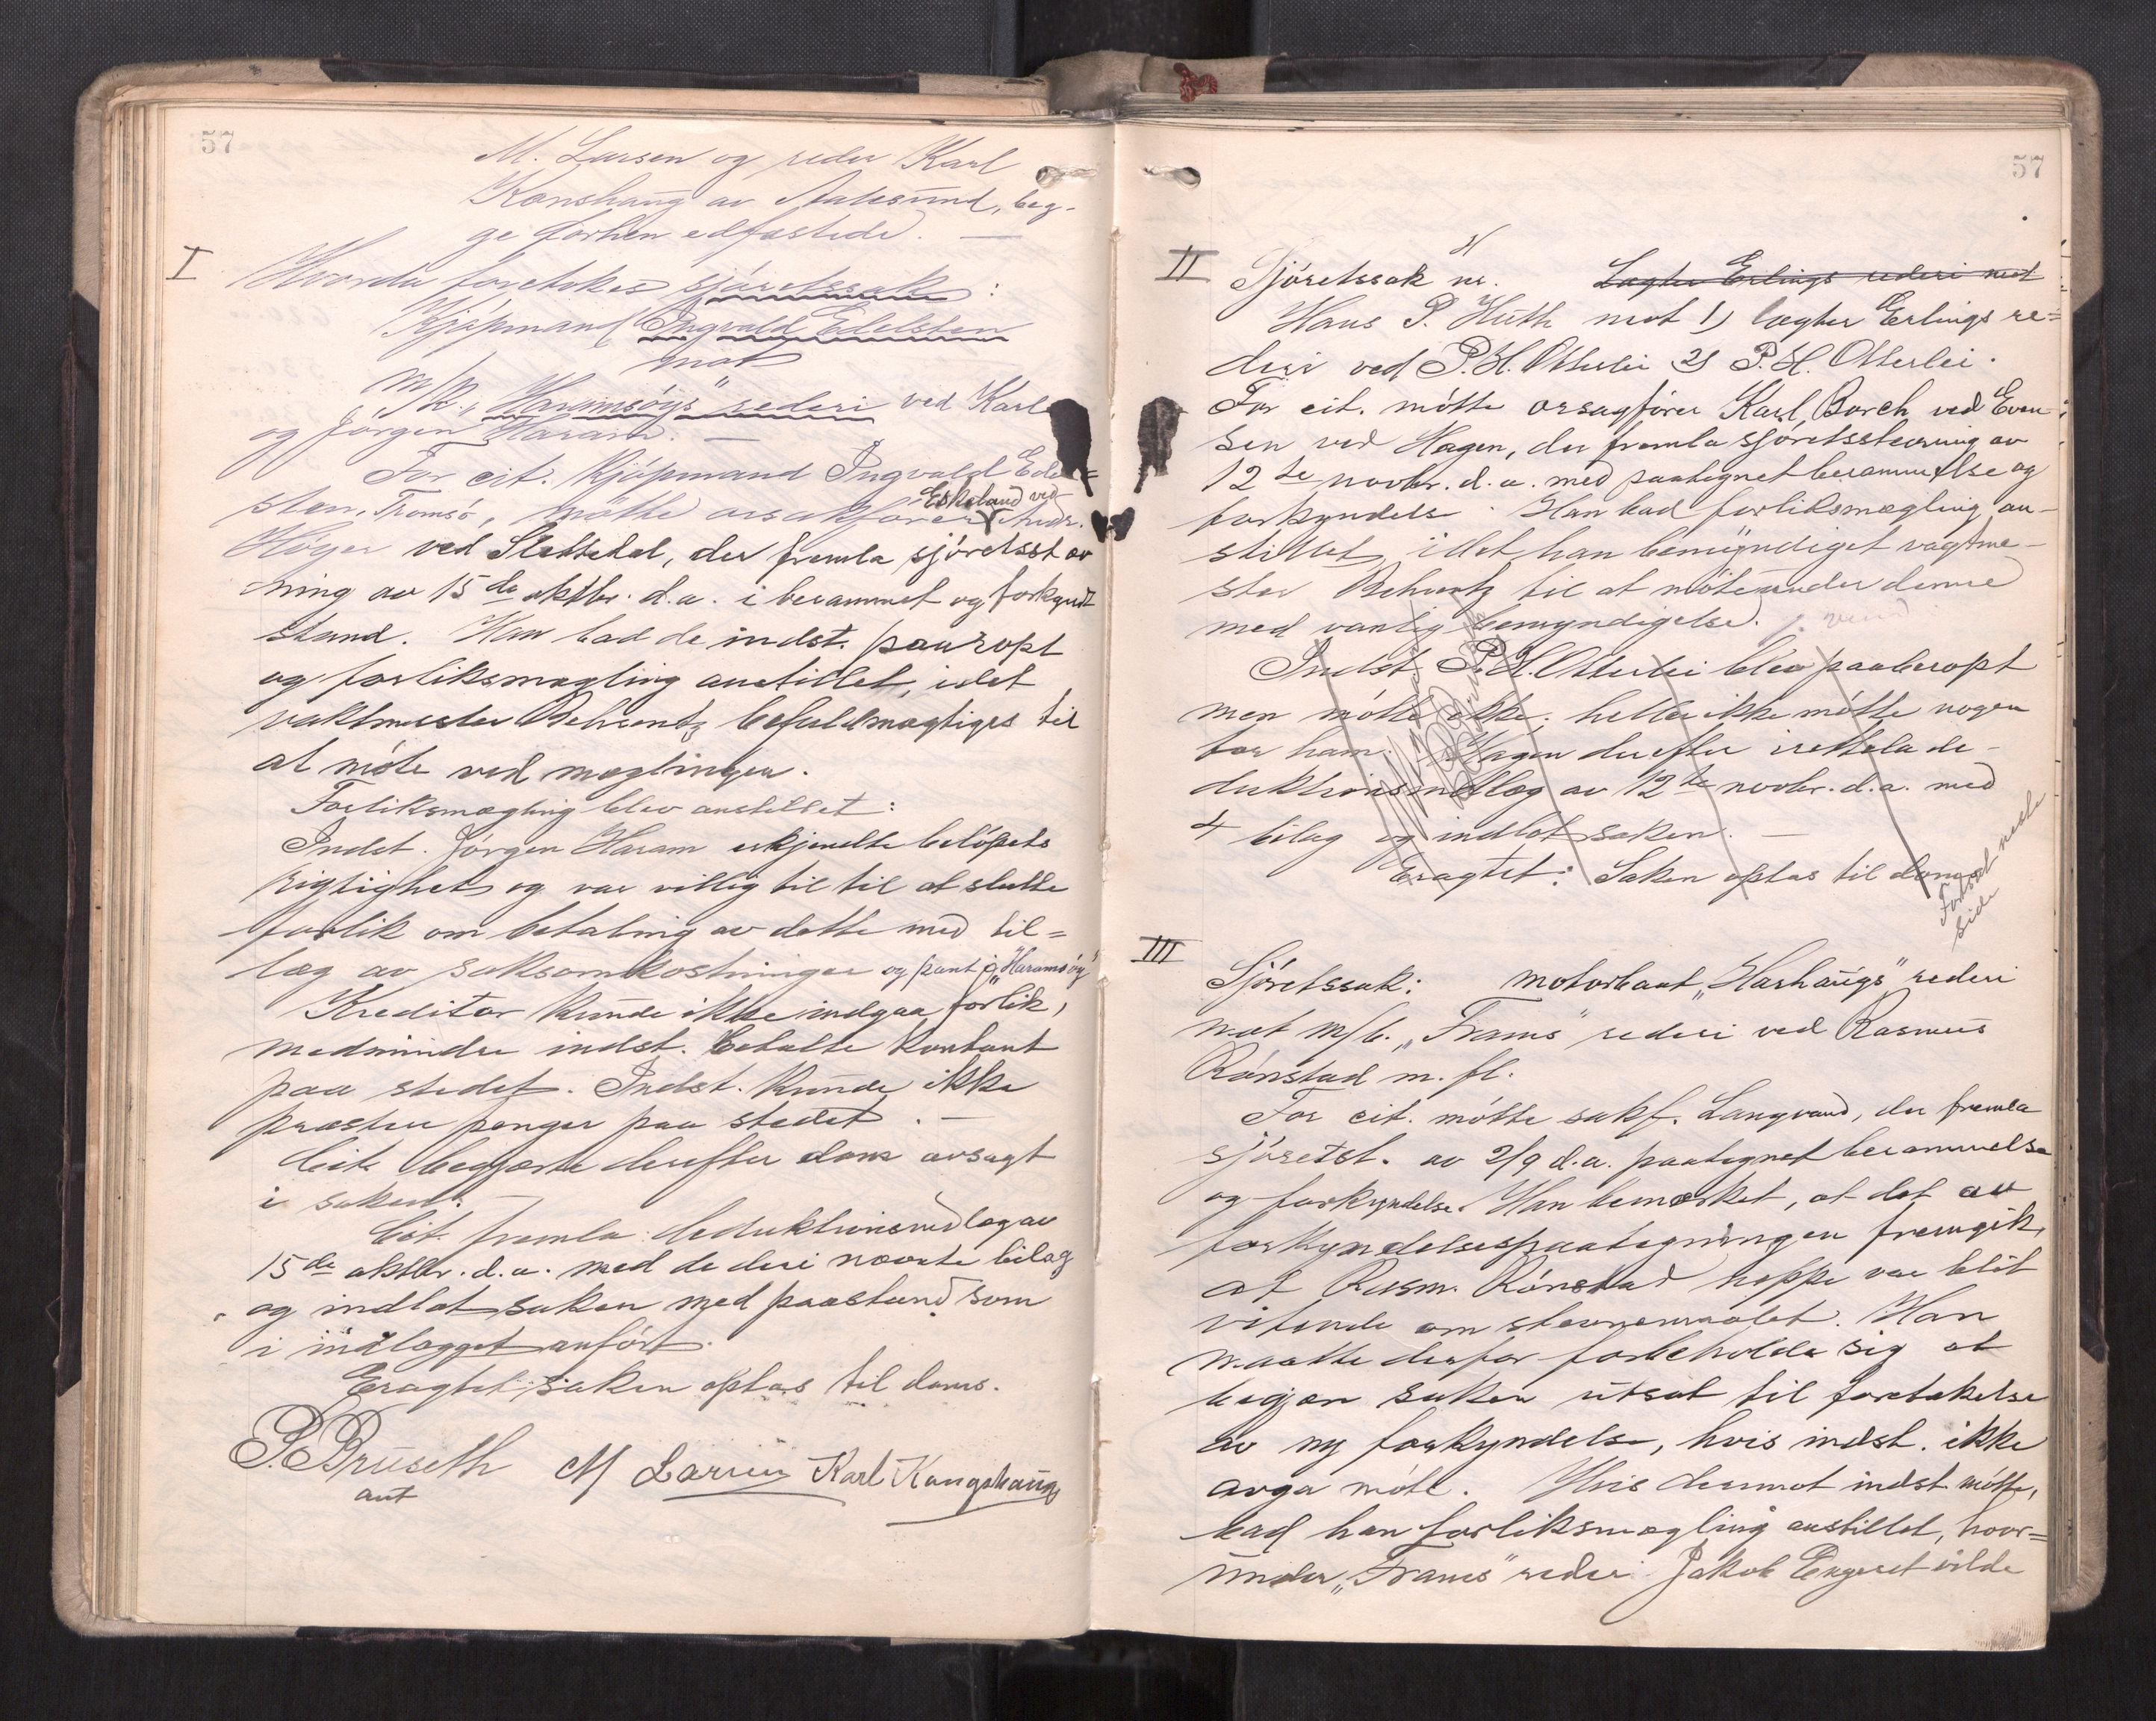 57
M. Larsen og reder Karl
Kongshaug av Aalesund, beg-
ge forhen edfæstede. —
I Hvorda foretokes sjöretssak:
Kjöpmand Ingvald Edelsten
mot
M/K. „Haramsöys" rederi ved Karl
og Jörgen Haram. —
For cit. kjöpmand Ingvald Edel=
sten, Tromsö, mötte orsakförer Eskeland ved Andr.
Höger ved Slettedal, der fremla sjöretsstæv
ning av 15de oktbr. d.a. i berammet og forkyndt
stand. Han bad de indst. paaropt
og forliksmægling anstillet, idet
vaktmester Behrentz befuldmægtiges til
at möte ved mæglingen.
Forliksmægling blev anstillet:
Indst. Jörgen Haram erkjendte belöpets
rigtighet og var villig til til at slutte
forlik om betaling av dette med til=
læg av saksomkostninger og pant i „Haramsöy"
Kreditor kunde ikke indgaa forlik,
medmindre indst. betalte kontant
paa stedet. Indst. kunde ikke
præstere penger paa stedet. —
Cit. begjærte derefter dom avsagt
i saken. —
Cit. fremla deduktionsindlæg av
15de oktbr. d.a. med de deri nævnte bilag
og indlot saken med paastand som
i indlægget anfört.
Eragtet: saken optas til doms.
P. Bruseth M Larsen Karl Kongshaug
aut
57
II Sjöretssak nr. Lægter Erlings rederi mot
Hans P. Huth mot 1) lægter Erlings re=
deri ved P.H. Otterlei 2) P.H. Otterlei.
For cit. mötte orsagförer Karl Borch ved Even-
sen ved Hagen, der fremla sjöretsstevning av
12te novbr. d.a. med paategnet berammelse og
forkyndelse. Han bad forliksmægling an-
stillet, idet han bemyndiget vagtme-
ster Behrentz til at möte under denne
med vanlig bemyndigelse.
Indst. P.H. Otterlei blev paaberopt
men mötte ikke. heller ikke mötte nogen
for ham. Hagen derefter irettela de-
duktionsindlæg av 12te novbr. d.a. med
4 bilag og indlot saken. —
Eragtet: Saken optas til doms
Fortsat næste
side
III
Sjöretssak: motorbaat „Hashaugs" rederi
mot m/b. „Frams" rederi ved Rasmus
Rönstad m. fl.
For cit. mötte sakf. Langvand, der fremla
sjöretst. av 2/9 d.a. paategnet berammelse
og forkyndelse. Han bemærket, at det av
forkyndelsespaategningen fremgik,
at Rasm. Rönstad neppe var blit
vitende om stevnemaalet. Han
maatte derfor forbeholde sig at
begjære saken utsat til foretakelse
av ny forkyndelse, hvis indst. ikke
avga möte. Hvis derimot indst. mötte,
bad han forliksmægling anstillet, hvor=
under „Frams" reder Jakob Engeset vilde